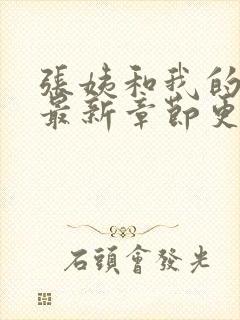 張姨和我的
最新章節更
石頭會發光